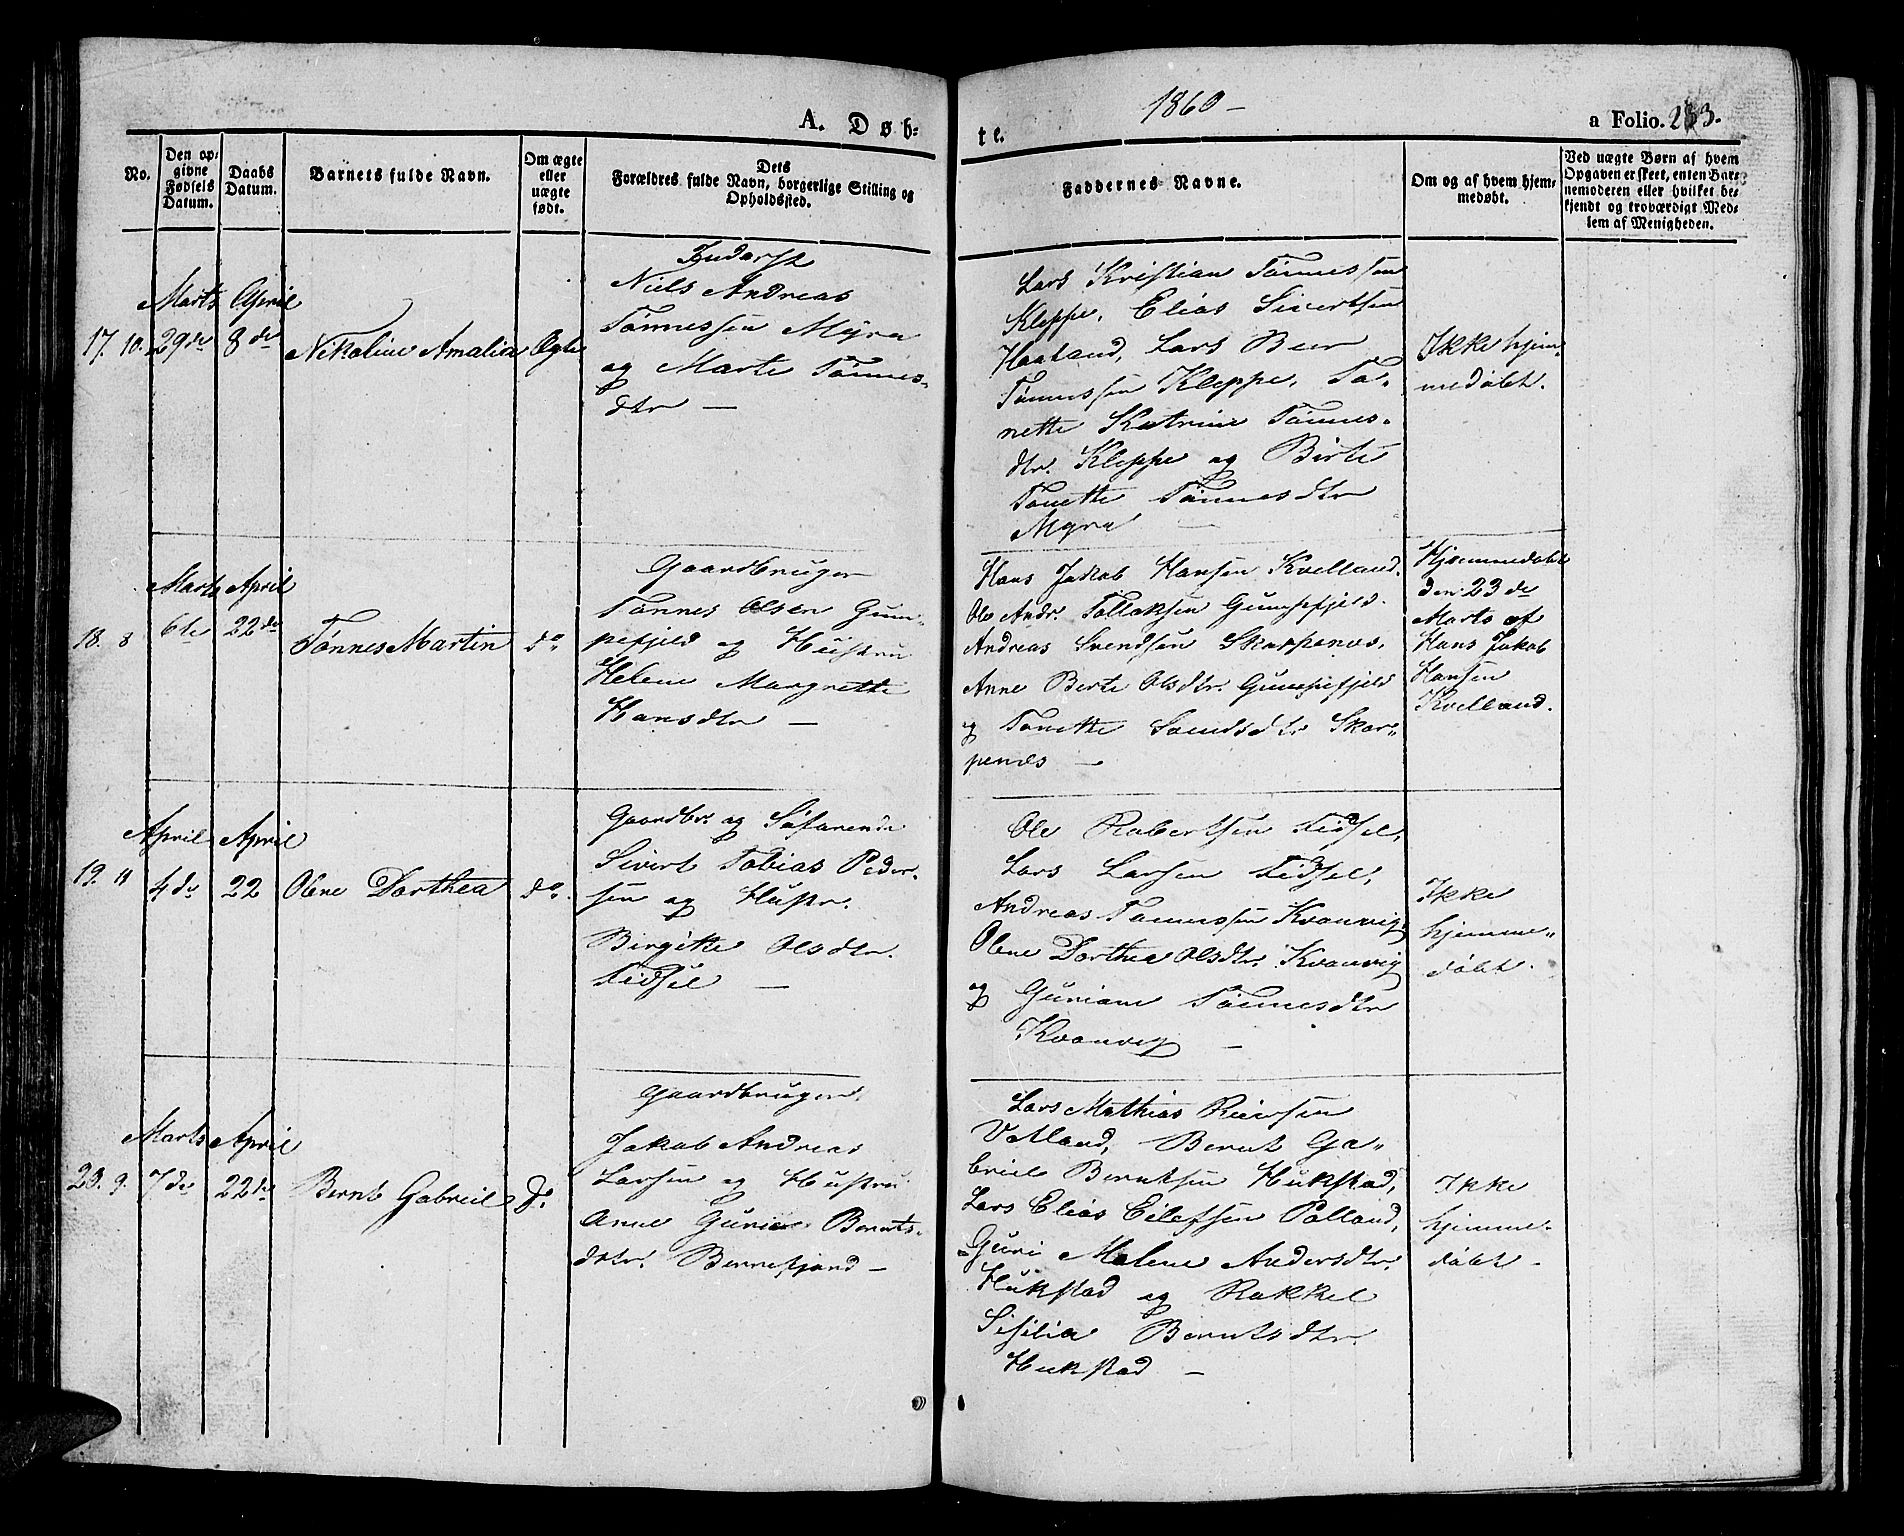 1860 -
A. Døb-
te.
a Folio. 233.
No.
Den op-
givne
Fødsels
Datum.
Daabs
Datum.
Barnets fulde Navn.
Om ægte
eller
uægte
født.
Dets
Forældres fulde Navn, borgerlige Stilling og
Opholdssted.
Faddernes Navne.
Om og af hvem hjem-
medøbt.
Ved uægte Børn af hvem
Opgaven er skeet, enten Bar-
nemoderen eller hvilket be-
kjendt og troværdigt Med-
lem af Menigheden.
17. 10.
Marts
29de
April
8de
Nikoline Amalia
Ægte
Inderst
Niels Andreas
Tønnessen Myra
og Marte Tønnes-
dtr —
Lars Kristian Tønnessen
Kleppe, Elias Sivertsen
Haaland, Lars Beer
Tønnessen Kleppe, To-
nette Katrine Tønnes-
dtr. Kleppe og Birte
Tonette Tønnesdtr
Myra —
Ikke hjem-
medøbt.
18. 8
Marts
6te
April
22de
Tønnes Martin
do
Gaardbruger
Tønnes Olsen Gum-
pefjeld og Hustru
Helene Margrette
Hansdtr —
Hans Jakob Hansen Kvelland.
Ole Andr. Tollaksen Gumpefjeld.
Andreas Svendsen Skarpenæs,
Anne Berte Olsdtr. Gumpefjeld
og Tonette Skar-
penæs —
Hjemmedøbt
den 23de
Marts af
Hans Jakob
Hansen
Kvelland.
19. 11
April
4de
April
22
Olene Dorthea
do.
Gaardbr. og Søfarende
Sivert Tobias Peder-
sen og Hustr.
Birgitte Olsdtr.
Lidsel —
Ole Robertsen Lidsel,
Lars Larsen Lidsel,
Andreas Tønnessen Kvanvig,
Olene Dorthea Olsdtr. Kvanvig
og Guriane Tønnesdtr
Kvanvig —
Ikke
hjemme-
døbt.
20. 9.
Marts
7de
April
22de
Bernt Gabriel
do
Gaardbruger
Jakob Andreas
Larsen og Hustru
Anne Gurine Bernts-
datr. Bernefjand —
Lars Mathias Reiersen
Vatland, Bernt Ga-
briel Berntsen Hukstad,
Lars Elias Eilefsen Polland,
Guri Malene Andersdtr.
Hukstad og Rakkel
Sisilia Berntsdtr
Hukstad —
Ikke
hjemme-
døbt —